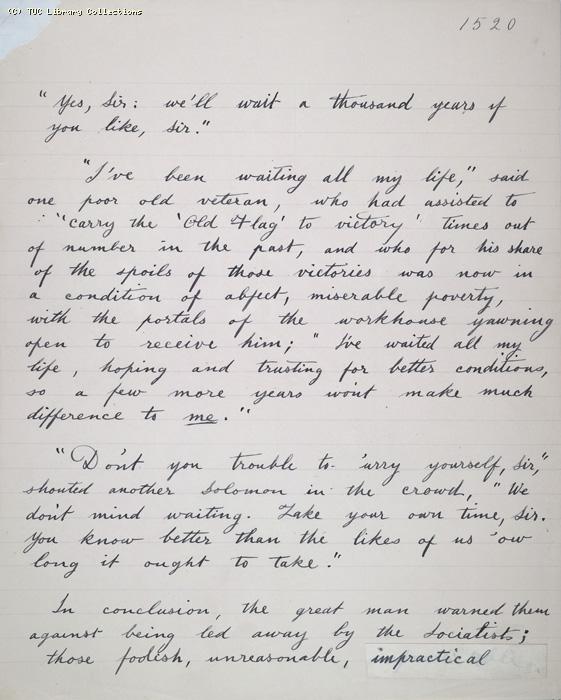 (C) TUC Library Collections
1520
"Yes, Sir: we'll wait a thousand years if
you like, Sir."
"I've been waiting all my life," said
one poor old veteran, who had assisted to
"carry the 'Old Flag' to victory' times out
of number in the past, and who for his share
of the spoils of those victories was now in
a condition of abject, miserable poverty,
with the portals of the workhouse yawning
open to receive him; "I've waited all my
life, hoping and trusting for better conditions,
so a few more years won't make much
difference to me."
"Don't you trouble to 'urry yourself, Sir,"
shouted another Solomon in the crowd, "We
don't mind waiting. Take your own time, Sir.
You know better than the likes of us 'ow
long it ought to take."
In conclusion, the great man warned them
against being led away by the Socialists;
those foolish, unreasonable, impractical